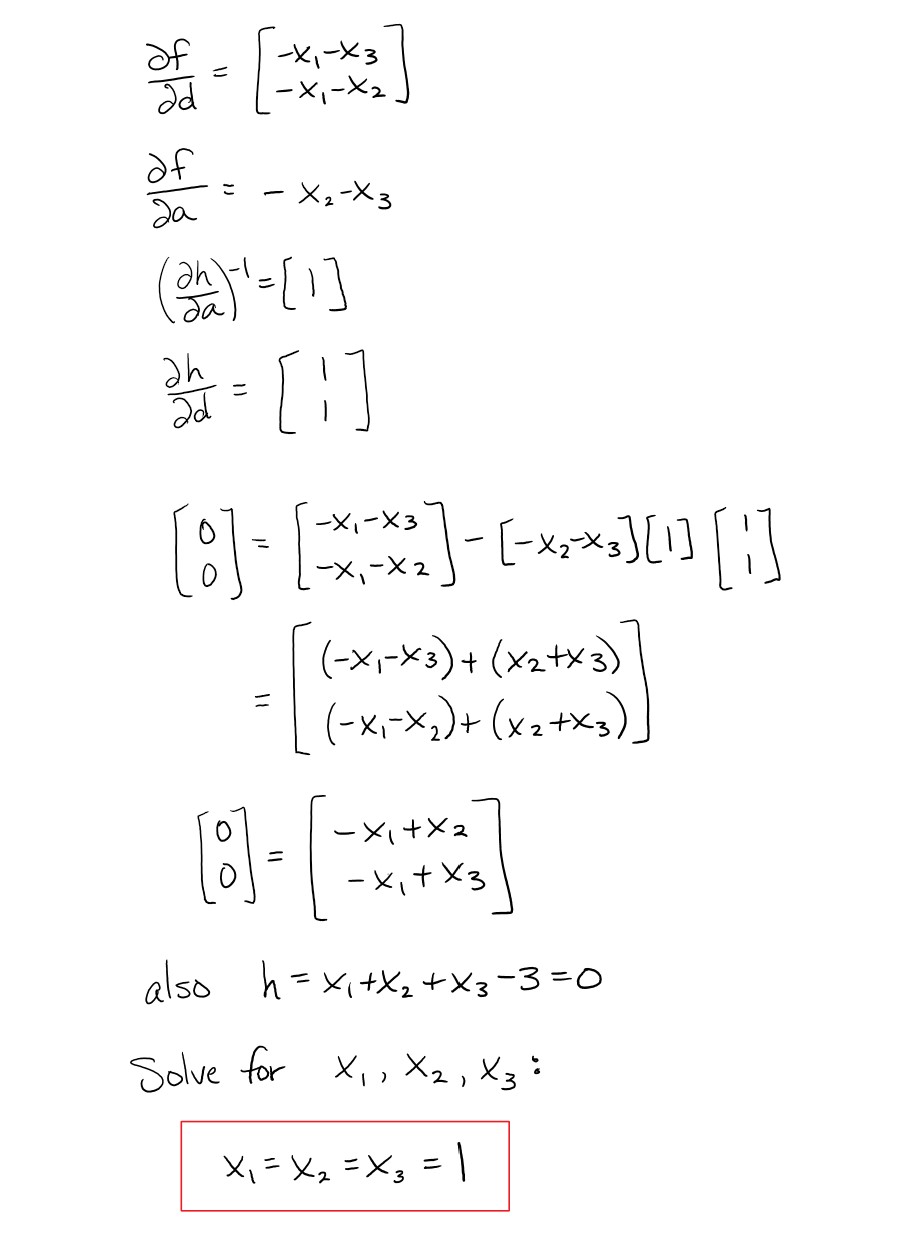 ∂f/∂d = [-x₁-x₃; -x₁-x₂]
∂f/∂a = - x₂-x₃
(∂h/∂a)⁻¹ = [1]
∂h/∂d = [1; 1]
[0; 0] = [-x₁-x₃; -x₁-x₂] - [-x₂-x₃][1][1; 1]
= [(-x₁-x₃)+(x₂+x₃); (-x₁-x₂)+(x₂+x₃)]
[0; 0] = [-x₁+x₂; -x₁+x₃]
also h = x₁+x₂+x₃-3=0
Solve for x₁, x₂, x₃:
x₁ = x₂ = x₃ = 1